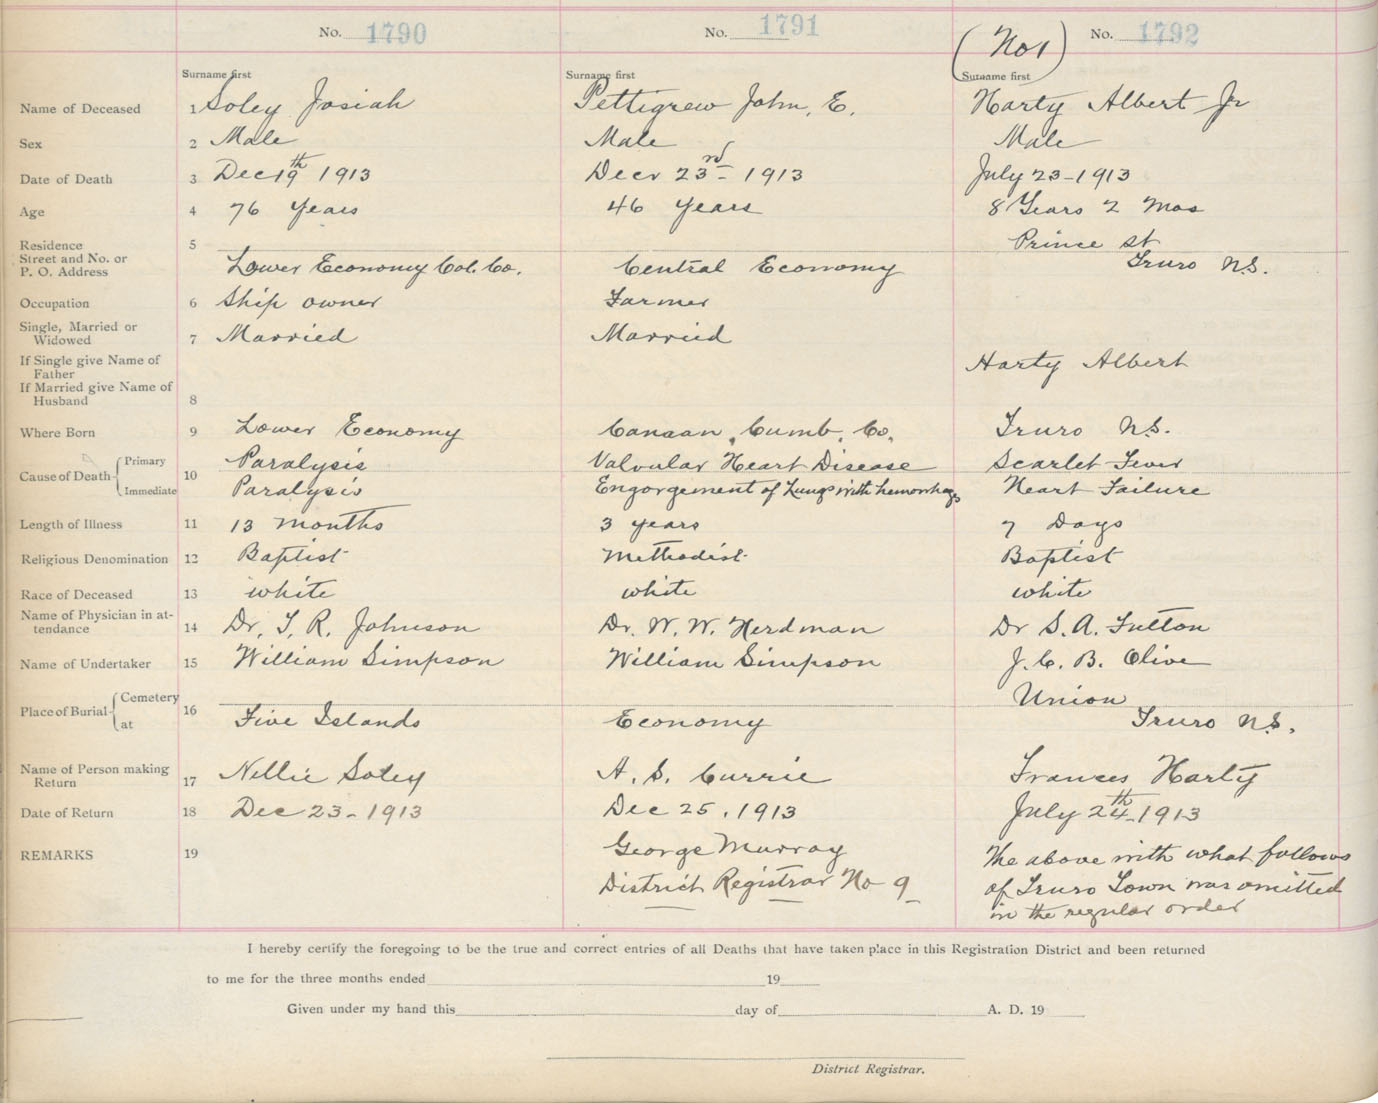 No. 1790 No. 1791 (No 1) No. 1792
Surname first Surname first Surname first
Name of Deceased 1 Soley Josiah Pettigrew John, E. Harty Albert Jr
Sex 2 Male Male Male
Date of Death 3 Dec 19th 1913 Decr 23rd - 1913 July 23-1913
Age 4 76 years 46 years 8 Years 2 Mos
Residence 5 Prince St
Street and No. or
P. O. Address Lower Economy Col. Co. Central Economy Truro N.S.
Occupation 6 Ship owner Farmer
Single, Married or
Widowed 7 Married Married
If Single give Name of
Father Harty Albert
If Married give Name of
Husband 8
Where Born 9 Lower Economy Canaan, Cumb. Co. Truro N.S.
Cause of Death 10 Primary Paralysis Valvular Heart Disease Scarlet Fever
Immediate Paralysis Engorgement of Lungs with hemorhage Heart Failure
Length of Illness 11 13 months 3 years 7 Days
Religious Denomination 12 Baptist Methodist Baptist
Race of Deceased 13 white white white
Name of Physician in at-
tendance 14 Dr. T. R. Johnson Dr. W. W. Herdman Dr S. A. Fulton
Name of Undertaker 15 William Simpson William Simpson J. C. B. Olive
Place of Burial 16 Cemetery Union
at Five Islands Economy Truro N.S.
Name of Person making
Return 17 Nellie Soley A. S. Currie Frances Harty
Date of Return 18 Dec 23-1913 Dec 25, 1913 July 24th 1913
REMARKS 19 George Murray The above with what follows
District Registrar No 9 of Truro Town was omitted
in the regular order
I hereby certify the foregoing to be the true and correct entries of all Deaths that have taken place in this Registration District and been returned
to me for the three months ended 19
Given under my hand this day of A. D. 19
District Registrar.